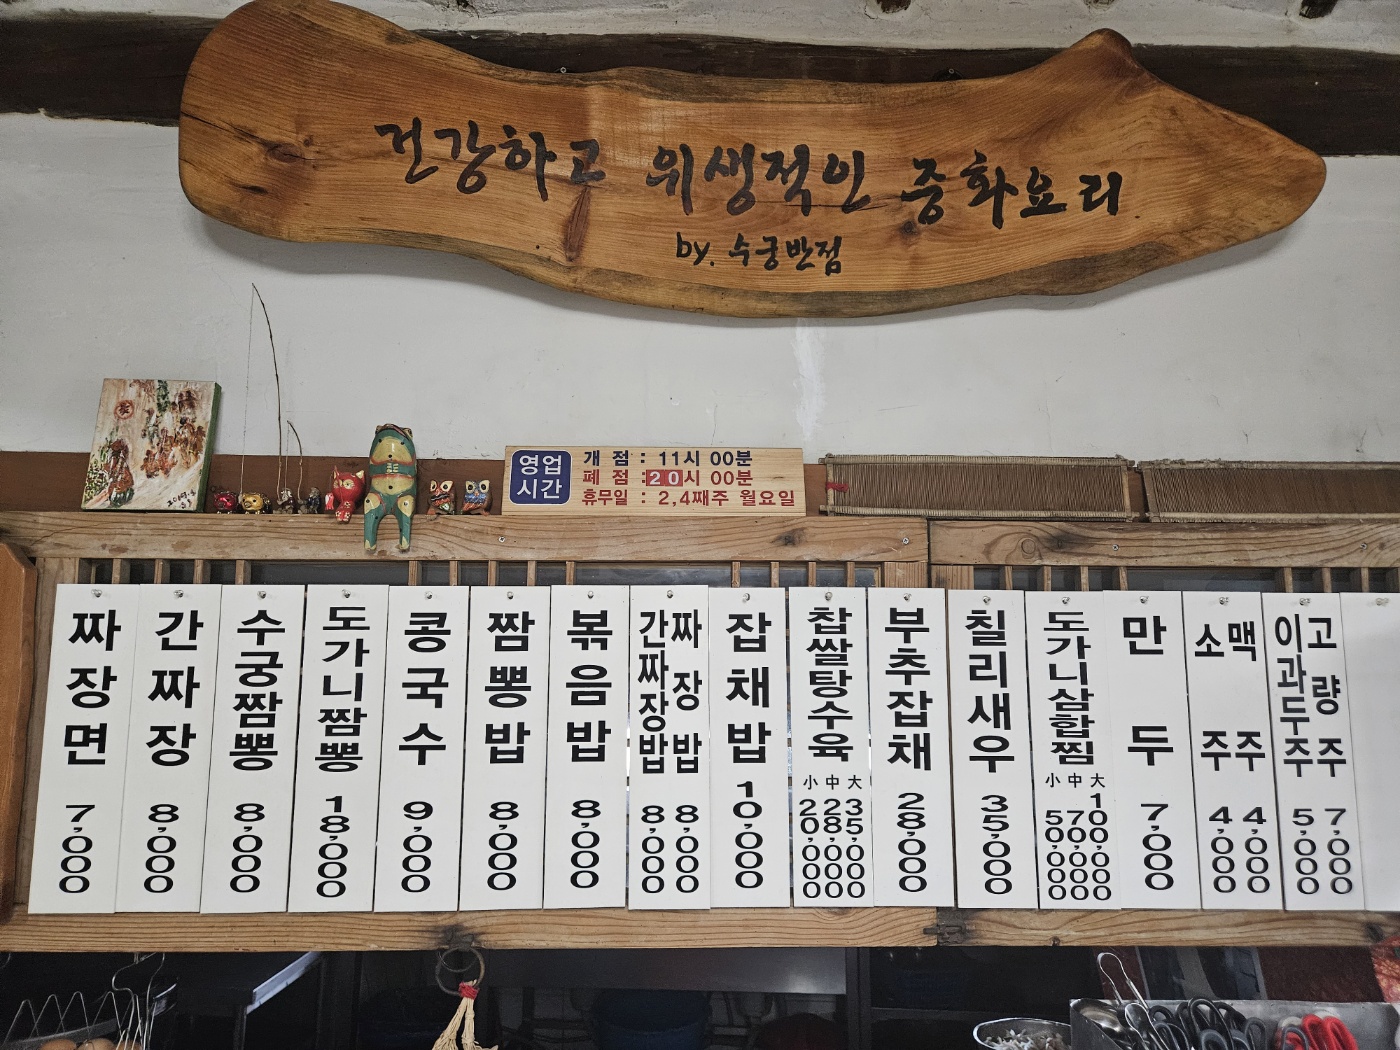 건강하고 위생적인 중화요리
by. 수궁반점
영업시간
개 점 : 11시 00분
폐 점 : 20시 00분
휴무일 : 2,4째주 월요일
짜장면 7,000
간짜장 8,000
수궁짬뽕 8,000
도가니짬뽕 18,000
콩국수 9,000
짬뽕밥 8,000
볶음밥 8,000
간짜장밥 8,000
짜장밥 8,000
잡채밥 10,000
찹쌀탕수육 小 20,000 中 28,000 大 35,000
부추잡채 28,000
칠리새우 35,000
도가니삼합찜 小 50,000 中 70,000 大 100,000
만두 7,000
소주 4,000
맥주 4,000
이과두주 5,000
고량주 7,000